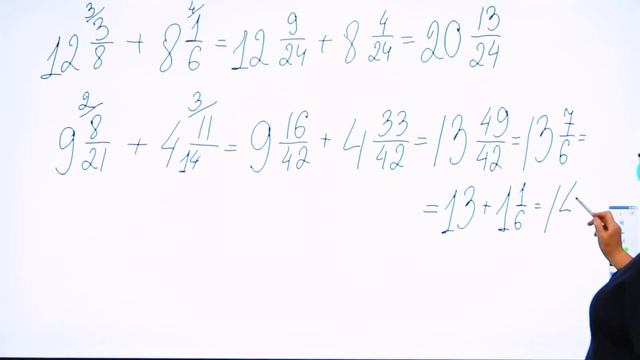 12 3/8 + 8 1/6 = 12 9/24 + 8 4/24 = 20 13/24
9 8/21 + 4 11/14 = 9 16/42 + 4 33/42 = 13 49/42 = 13 7/6 =
= 13 + 1 1/6 = 14